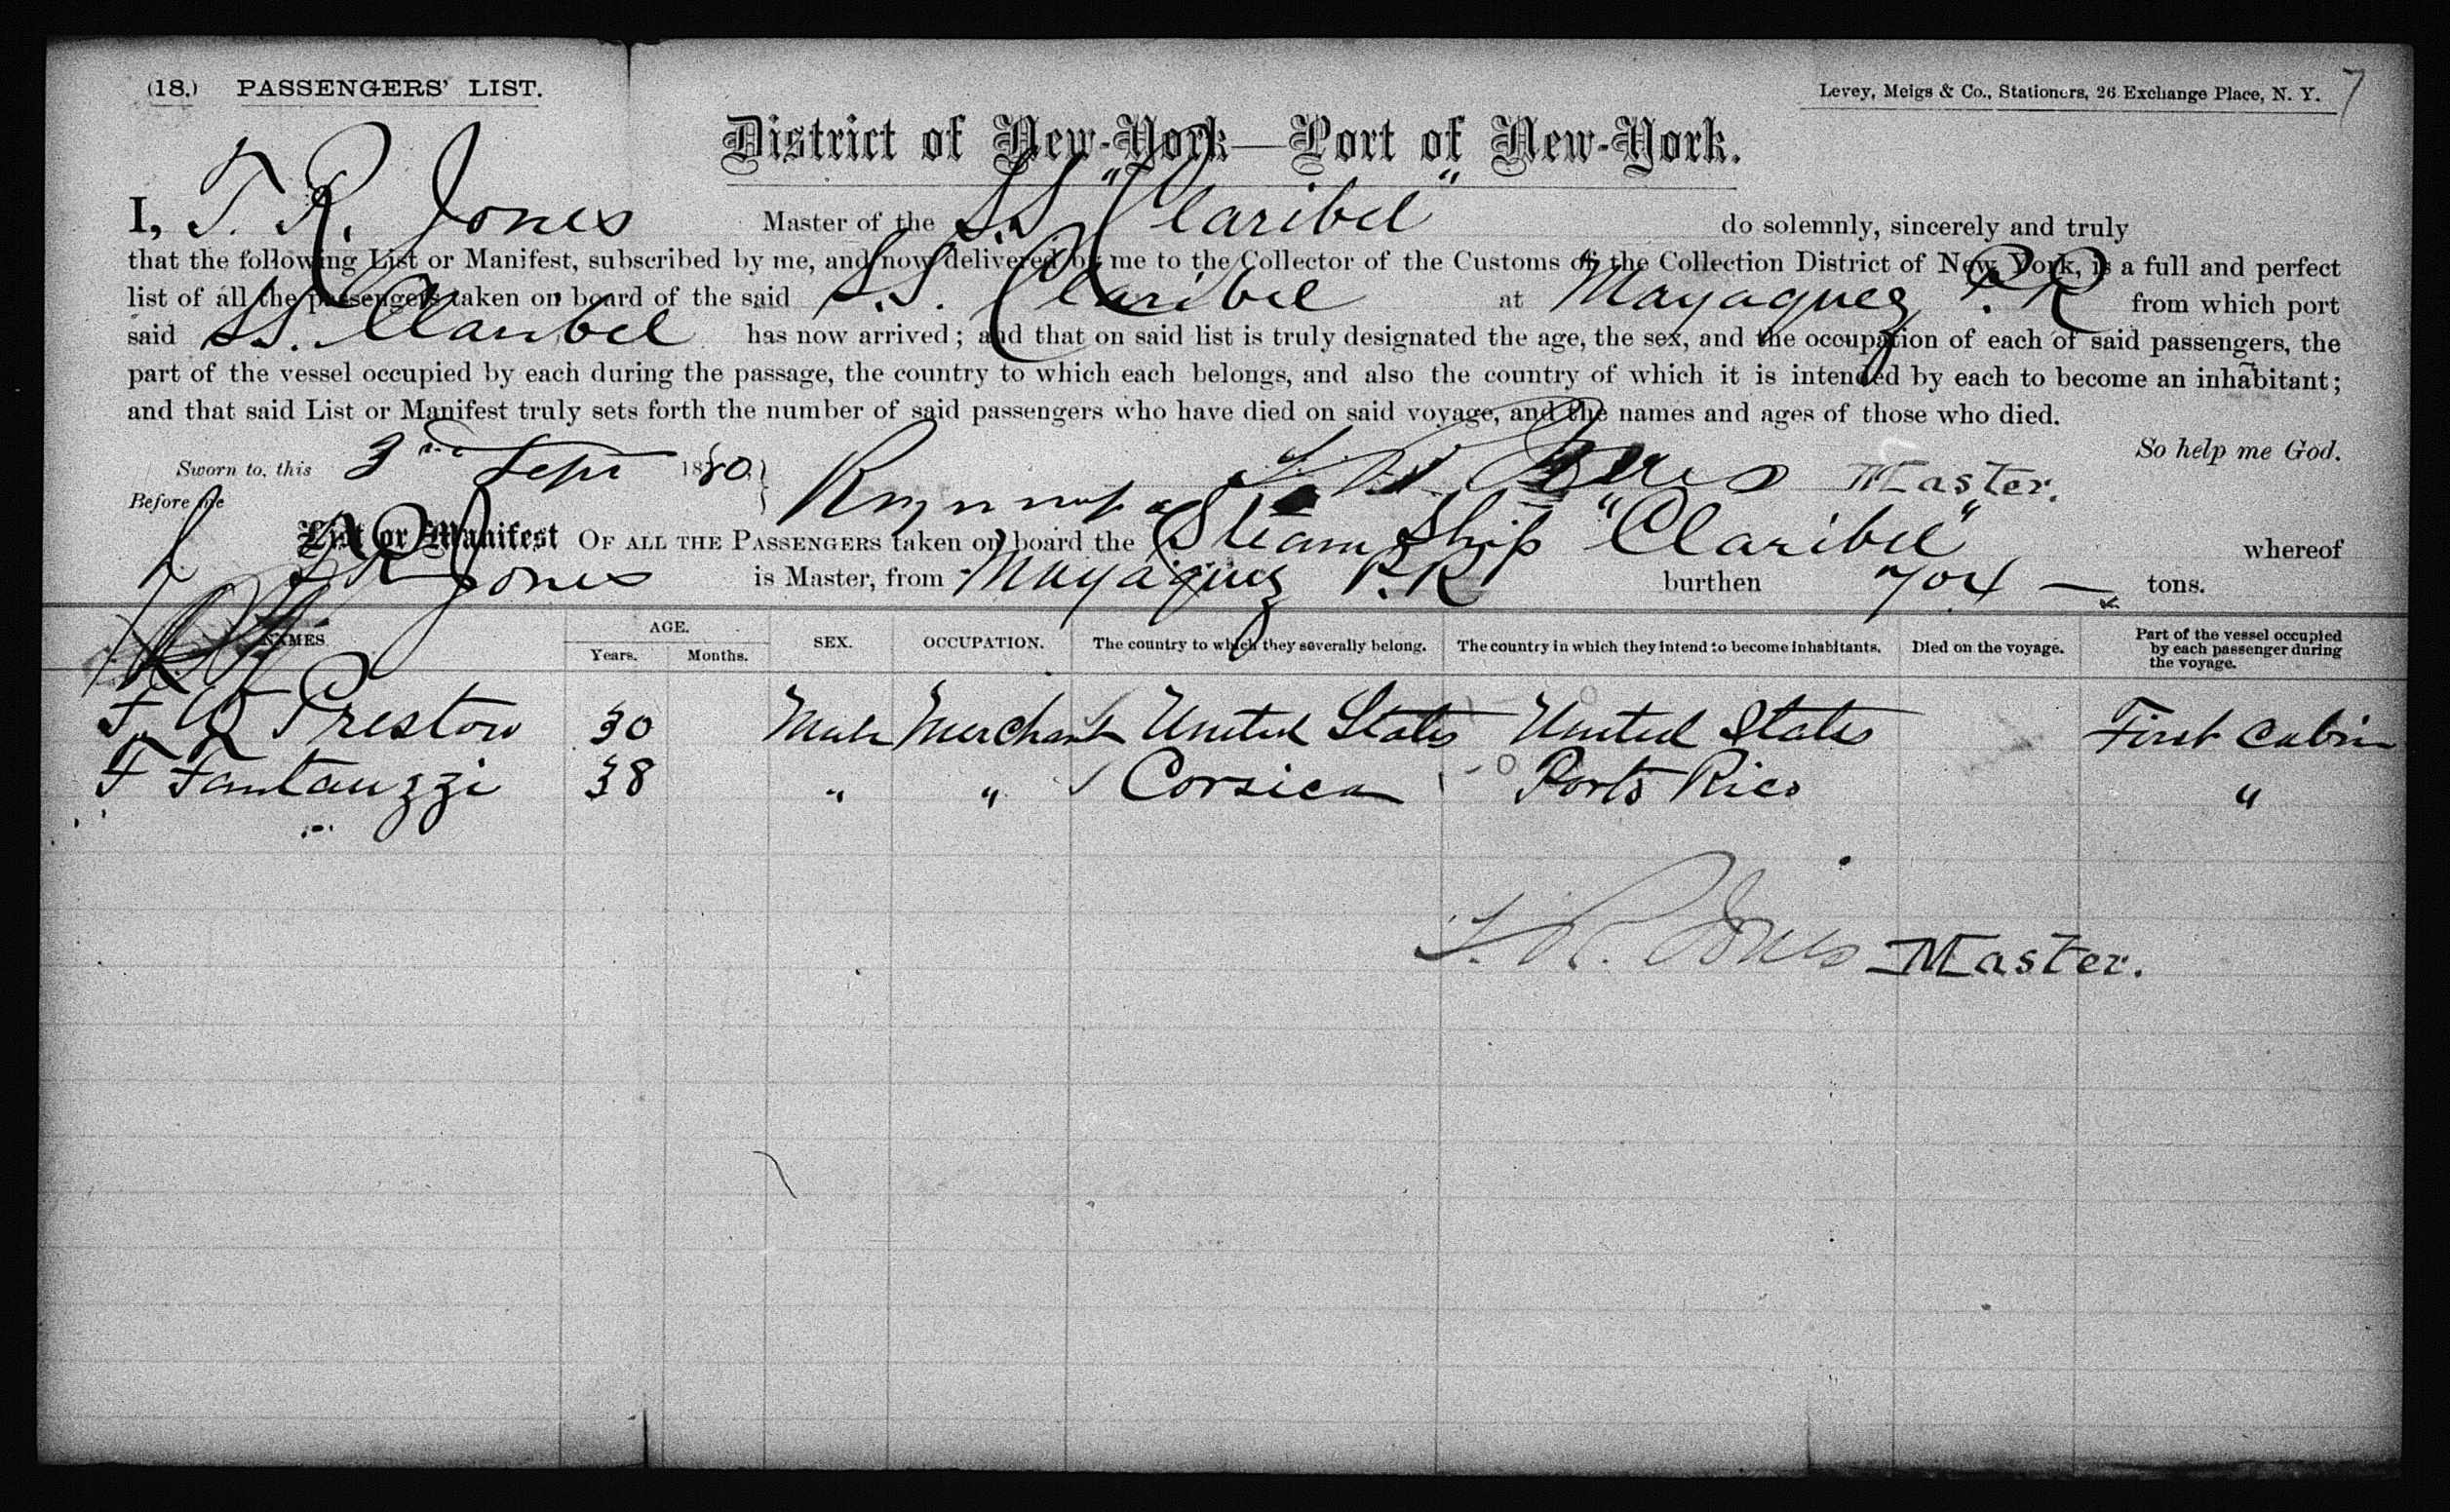 (18.) PASSENGERS' LIST.
Levey, Meigs & Co., Stationers, 26 Exchange Place, N. Y. 7
District of New-York—Port of New-York.
I, T. R. Jones Master of the SS "Claribel" do solemnly, sincerely and truly
that the following List or Manifest, subscribed by me, and now delivered by me to the Collector of the Customs of the Collection District of New York, is a full and perfect
list of all the passengers taken on board of the said S.S. Claribel at Mayaguez P.R from which port
said SS. Claribel has now arrived; and that on said list is truly designated the age, the sex, and the occupation of each of said passengers, the
part of the vessel occupied by each during the passage, the country to which each belongs, and also the country of which it is intended by each to become an inhabitant;
and that said List or Manifest truly sets forth the number of said passengers who have died on said voyage, and the names and ages of those who died.
So help me God.
Sworn to, this 3rd Sept 1880 T. R. Jones Master.
Before me
List or Manifest OF ALL THE PASSENGERS taken on board the Steam Ship "Claribel" whereof
T R Jones is Master, from Mayaguez P.R burthen 704 — tons.
NAMES AGE. Years. Months. SEX. OCCUPATION. The country to which they severally belong. The country in which they intend to become inhabitants. Died on the voyage. Part of the vessel occupied by each passenger during the voyage.
F. W Preston 30 Male Merchant United States United States First Cabin
F Fantauzzi 38 " " Corsica Porto Rico "
T. R. Jones Master.